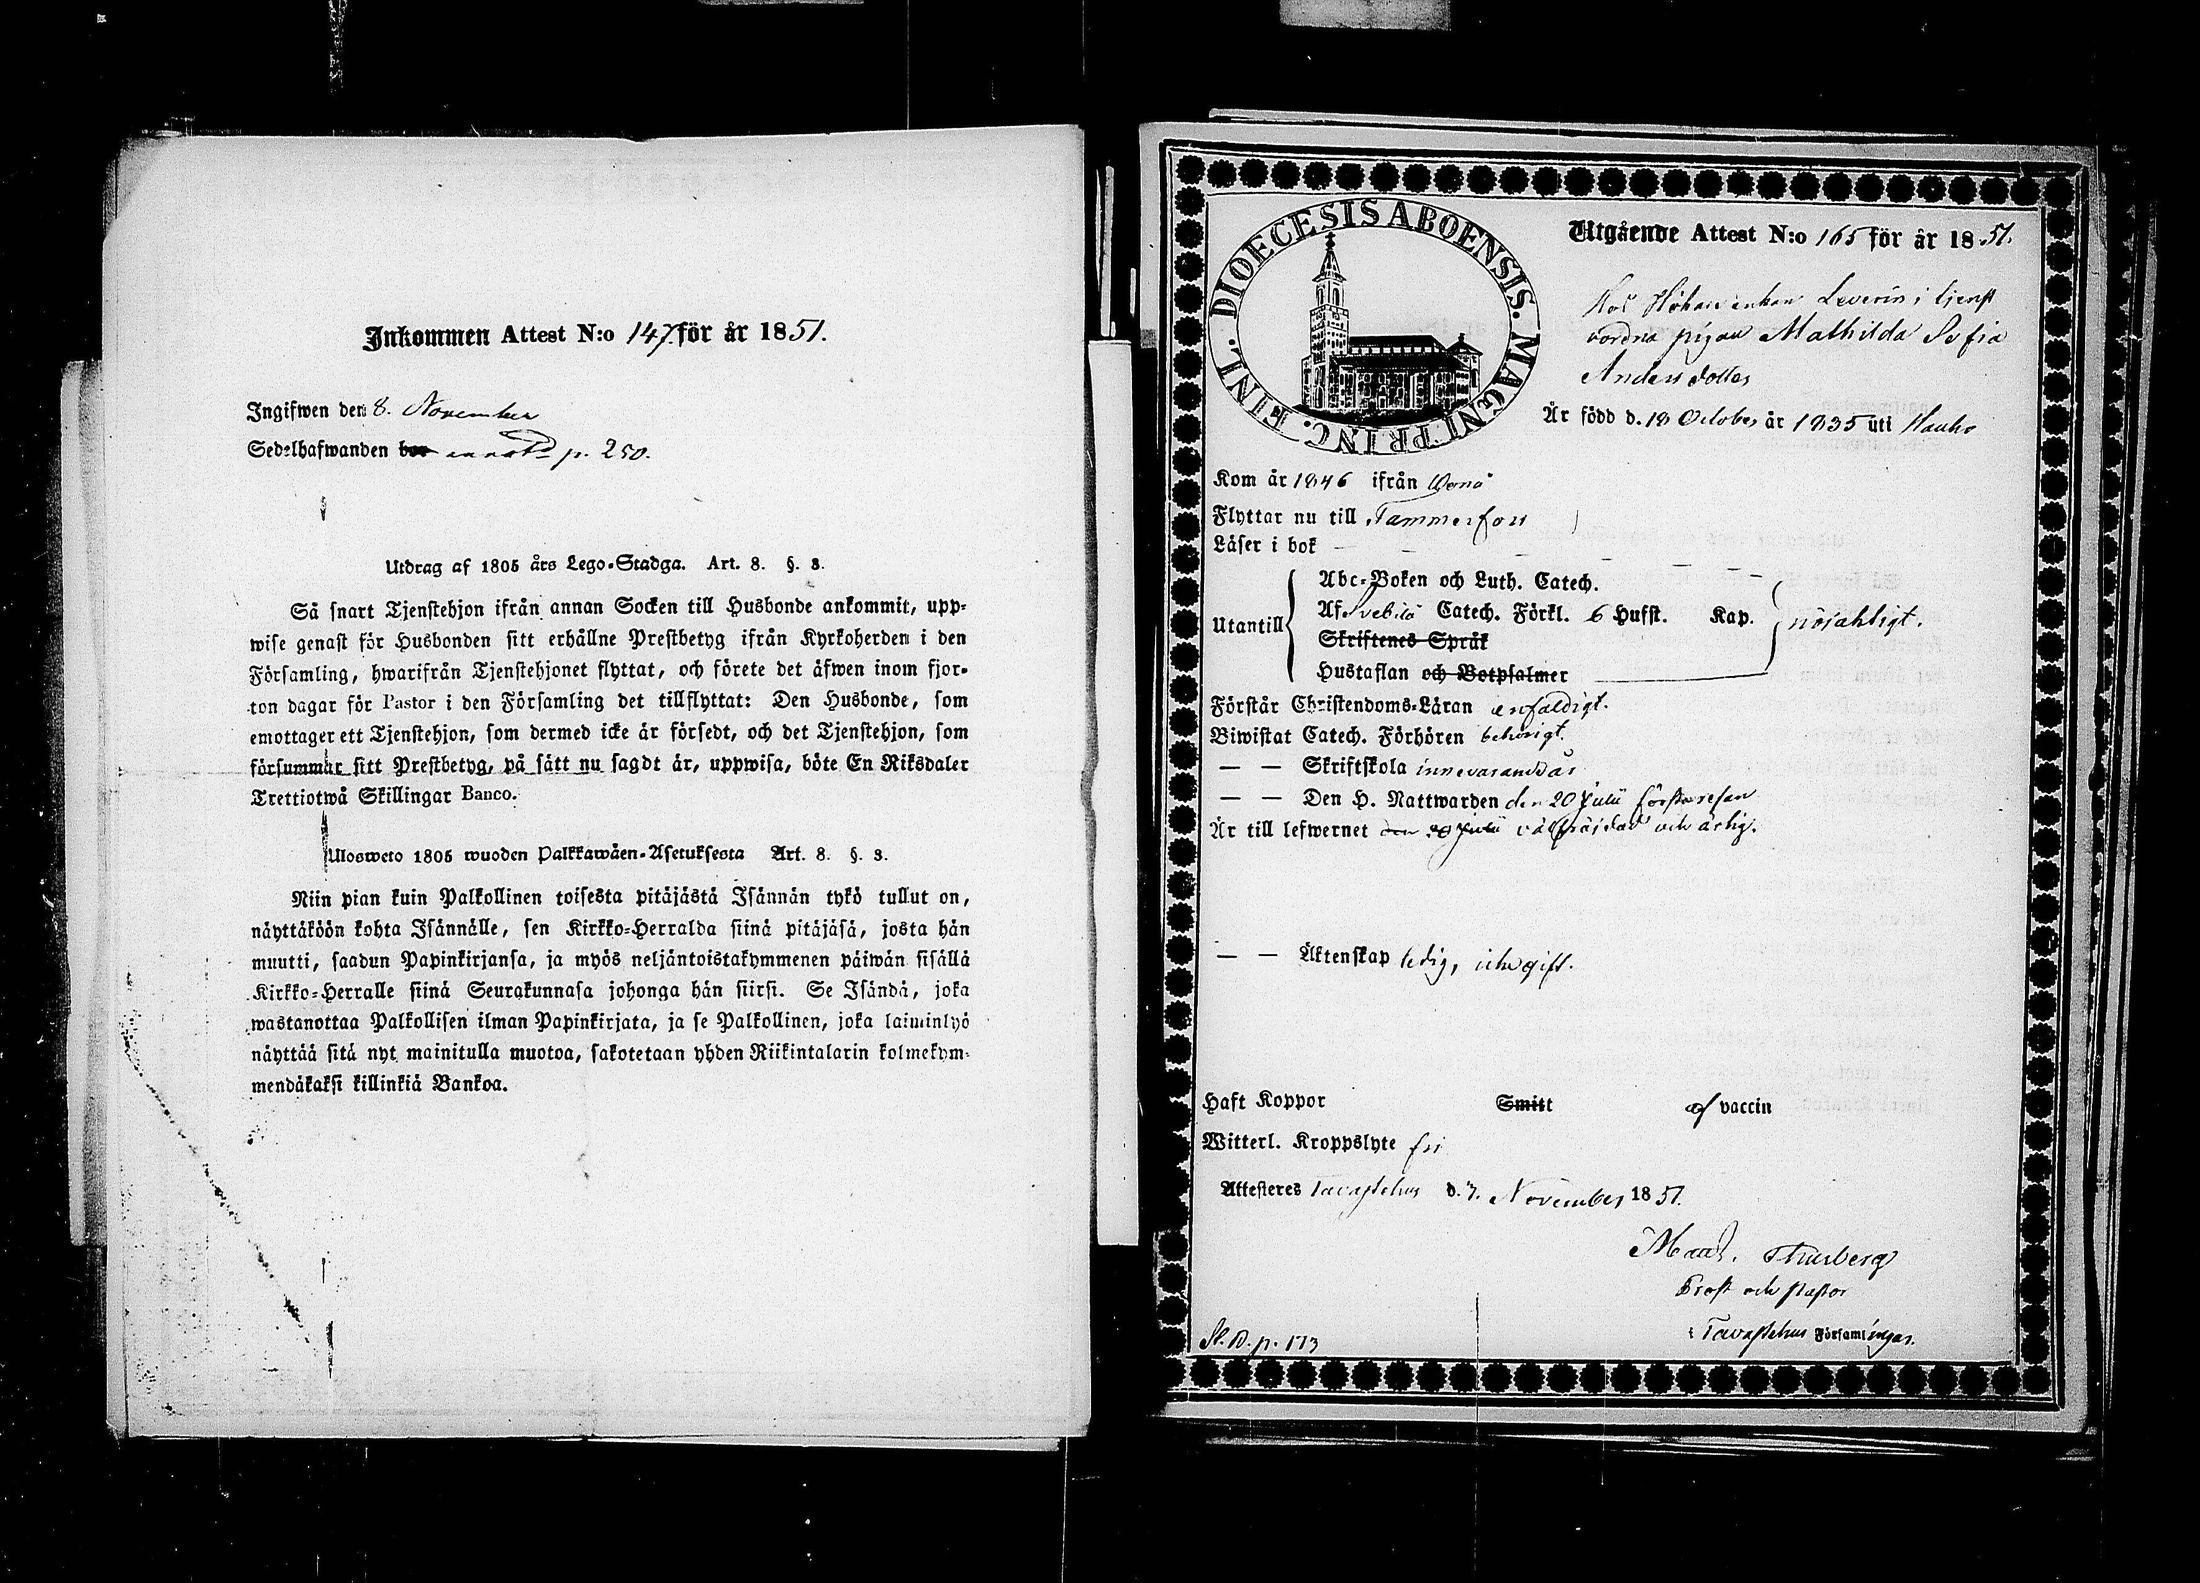 Inkommen Attest N:o 147 för år 1851.
Ingifwen den 8. November
Sedelhafwanden bor p. 250.
Utdrag af 1805 års Lego-Stadga. Art. 8. §. 3.
Så snart Tjenstehjon ifrån annan Socken till Husbonde ankommit, upp-
wise genast för Husbonden sitt erhållne Prestbetyg ifrån Kyrkoherden i den
Församling, hwarifrån Tjenstehjonet flyttat, och förete det äfwen inom fjor-
ton dagar för Pastor i den Församling det tillflyttat: Den Husbonde, som
emottager ett Tjenstehjon, som dermed icke är försedt, och det Tjenstehjon, som
försummar sitt Prestbetyg, på sätt nu sagdt är, uppwisa, böte En Riksdaler
Trettiotwå Skillingar Banco.
Ulosweto 1805 wuoden Palkkawäen-Asetuksesta Art. 8. §. 3.
Niin pian kuin Palkollinen toisesta pitäjästä Isännän tykö tullut on,
näyttäköön kohta Isännälle, sen Kirkko-Herralda siinä pitäjäsä, josta hän
muutti, saadun Papinkirjansa, ja myös neljäntoistakymmenen päiwän sisällä
Kirkko-Herralle siinä Seurakunnasa johonga hän siirsi. Se Isändä, joka
wastanottaa Palkollisen ilman Papinkirjata, ja se Palkollinen, joka laiminlyö
näyttää sitä nyt mainitulla muotoa, sakotetaan yhden Riikintalarin kolmekym-
mendäkaksi killinkiä Bankoa.
DIOECESIS ABOENSIS. MAGNI PRINC. FINL.
Utgående Attest N:o 165 för år 1851.
Hos enkan Leverin i tjenst
vordna pigan Mathilda Sofia
Anders dotter
Är född d. 18 October år 1835 uti Hauho
Kom år 1846 ifrån
Flyttar nu till Tammerfors
Läser i bok
Abc-Boken och Luth. Catech.
Utantill Af Svebilii Catech. Förkl. 6 Hufst. Kap. nöjaktigt.
Skriftenes Språk
Hustaflan och Botpsalmer
Förstår Christendoms-Läran enfaldigt.
Biwistat Catech. Förhören behörigt.
— — Skriftskola innevarande år
— — Den H. Nattwarden den 20 Julii första resan
Är till lefwernet den 20 Julii välfräjdad och ärlig.
— — Äktenskap ledig, icke gift.
Haft Koppor Smitt af vaccin
Witterl. Kroppslyte fri
Attesteres Tavastehus d. 7. November 1851.
Thurberg
Prost och Pastor
i Tavastehus Församlingar.
p. 173